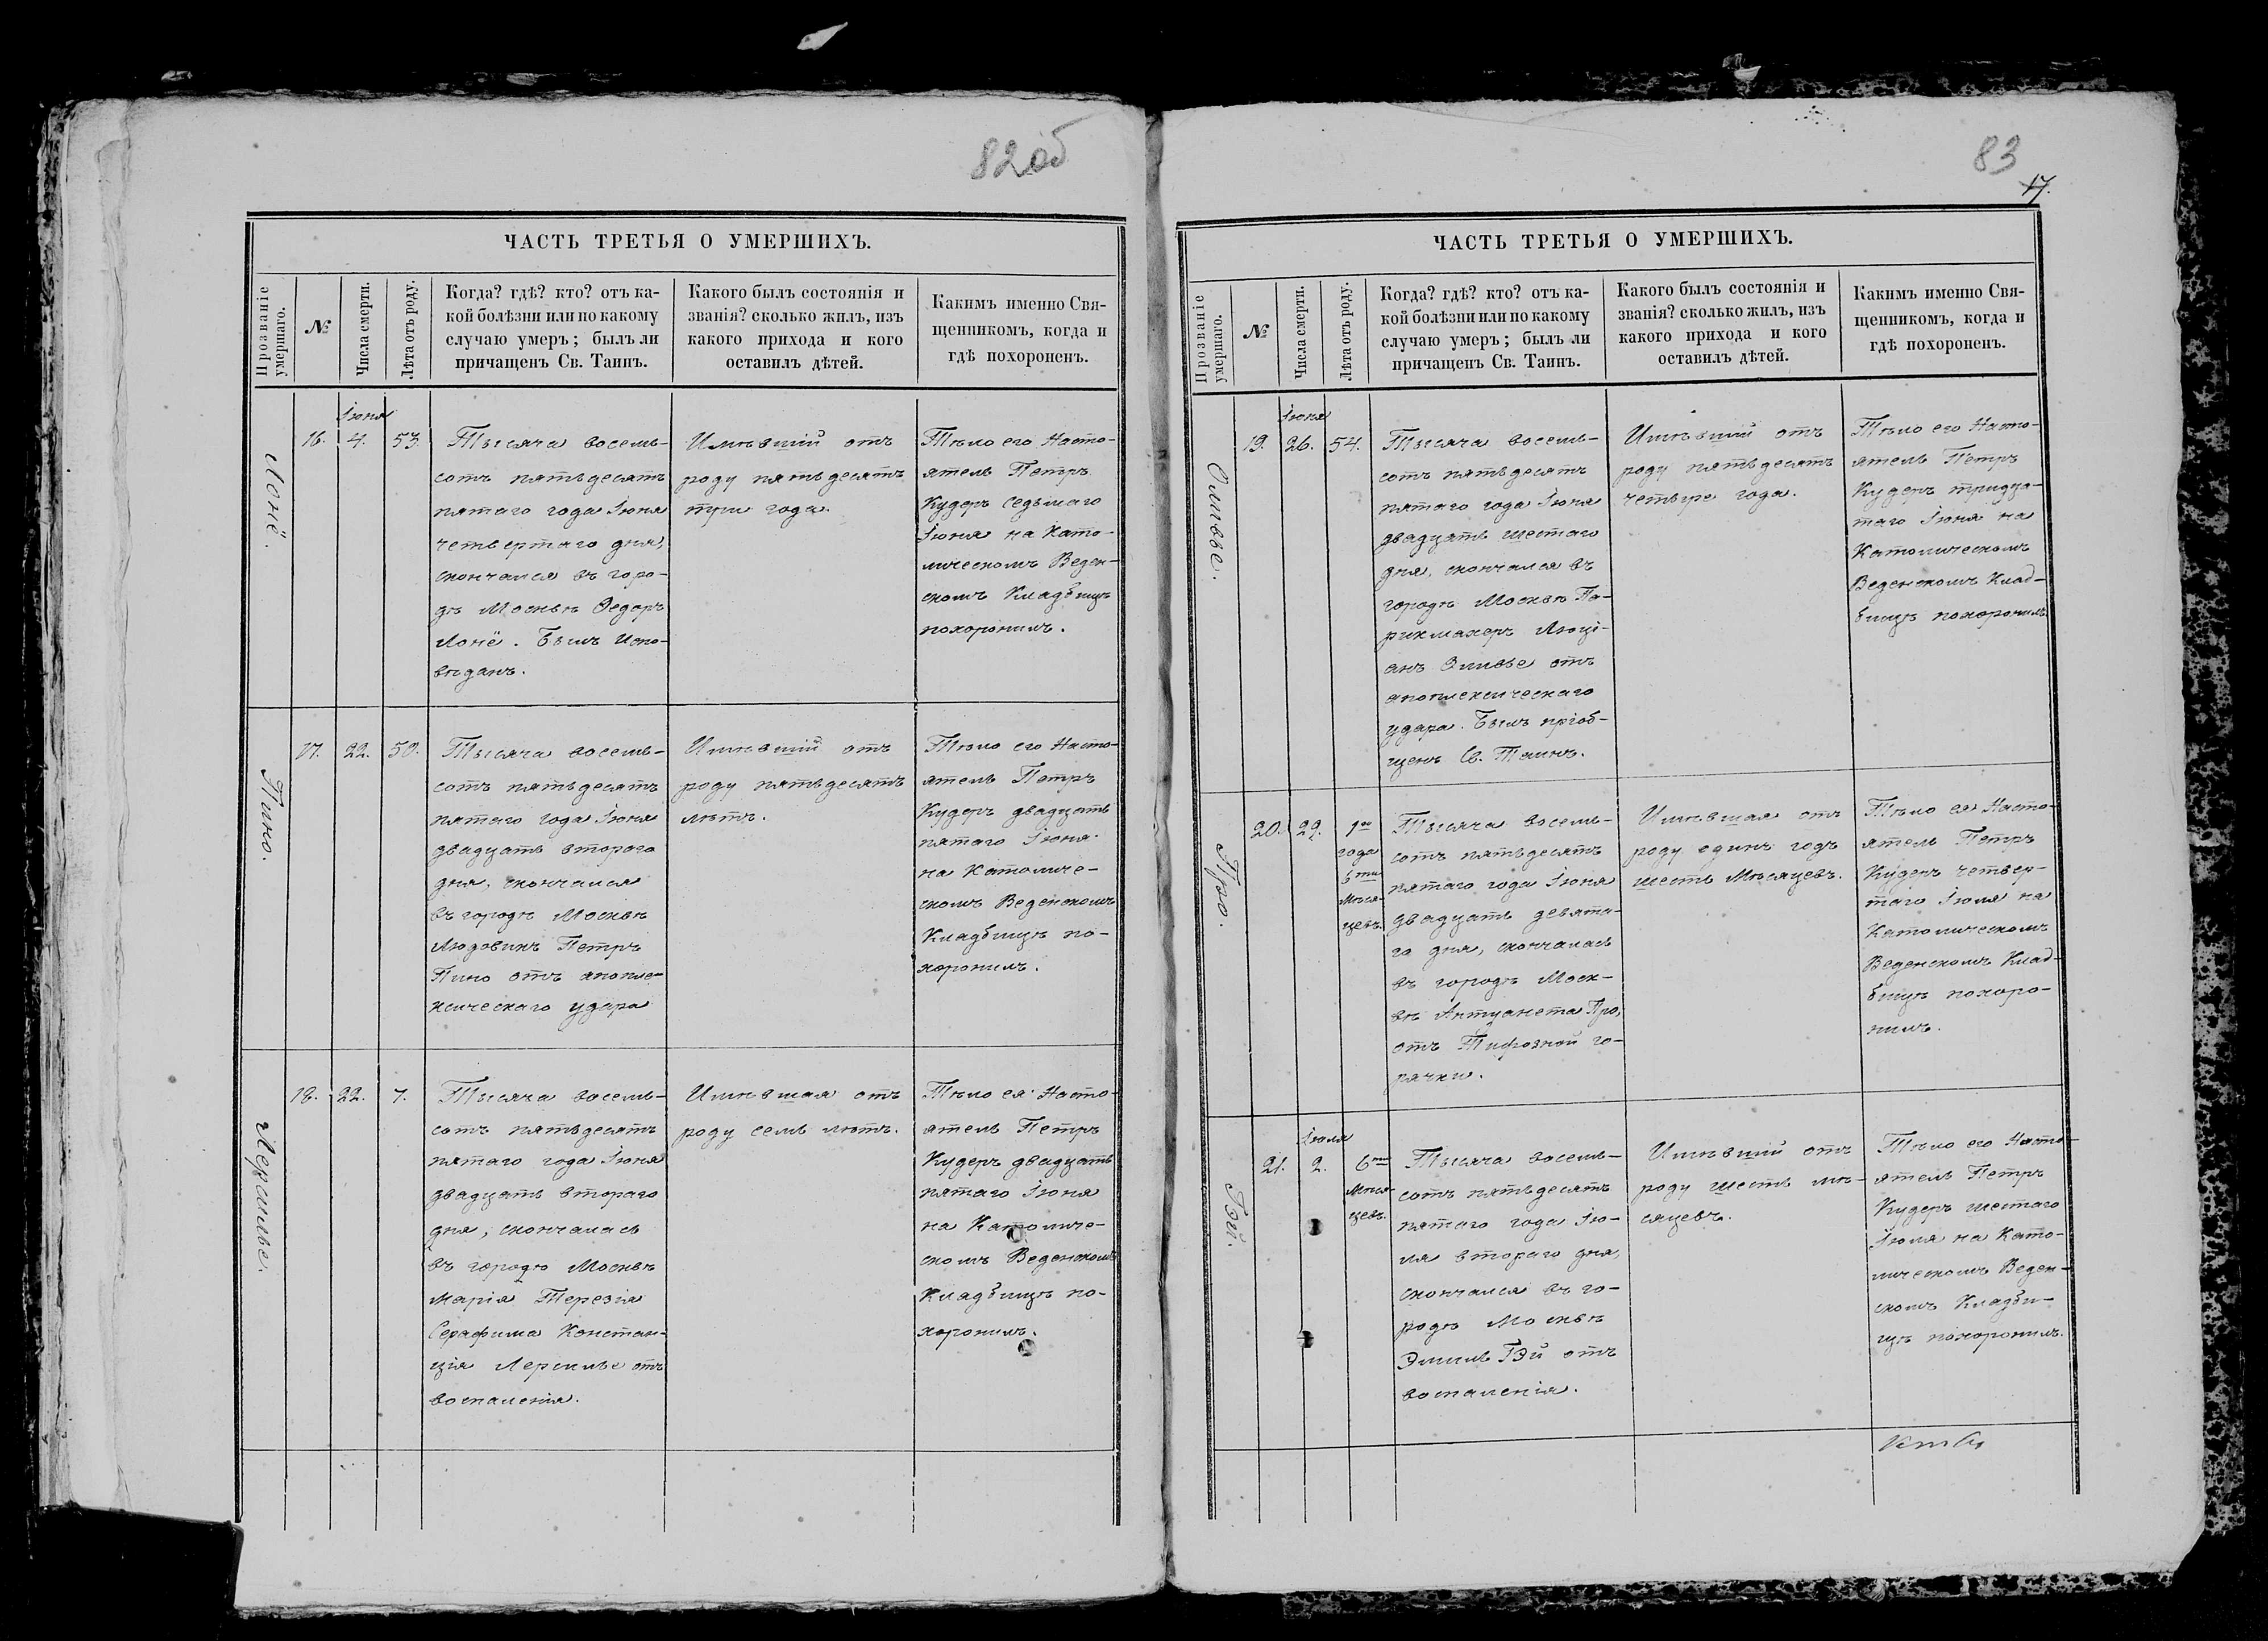 82 об
ЧАСТЬ ТРЕТЬЯ О УМЕРШИХЪ.
Прозваніе
умершаго.
№
Числа смерти.
Лѣта отъ роду.
Когда? гдѣ? кто? отъ ка-
кой болѣзни или по какому
случаю умеръ; былъ ли
причащенъ Св. Таинъ.
Какого былъ состоянія и
званія? сколько жилъ, изъ
какого прихода и кого
оставилъ дѣтей.
Какимъ именно Свя-
щенникомъ, когда и
гдѣ похороненъ.
Лонё.
16.
Іюня
4.
53.
Тысяча восемь-
сотъ пятьдесятъ
пятаго года Іюня
четвертаго дня,
скончался въ горо-
дѣ Москвѣ Ѳедоръ
Лонё. Былъ Испо-
вѣданъ.
Имѣвшій отъ
роду пятьдесятъ
три года.
Тѣло его Насто-
ятель Петръ
Кудеръ седьмаго
Іюня на Като-
лическомъ Веден-
скомъ Кладбищѣ
похоронилъ.
Пино.
17.
22.
50.
Тысяча восемь-
сотъ пятьдесятъ
пятаго года Іюня
двадцать втораго
дня, скончался
въ городѣ Москвѣ
Людовикъ Петръ
Пино отъ апопле-
ксическаго удара
Имѣвшій отъ
роду пятьдесятъ
лѣтъ.
Тѣло его Насто-
ятель Петръ
Кудеръ двадцать
пятаго Іюня
на Католиче-
скомъ Веденскомъ
Кладбищѣ по-
хоронилъ.
Лерсилье.
18.
22.
7.
Тысяча восемь-
сотъ пятьдесятъ
пятаго года Іюня
двадцать втораго
дня, скончалась
въ городѣ Москвѣ
Марія Терезія
Серафима Констан-
ція Лерсилье отъ
воспаленія.
Имѣвшая отъ
роду семь лѣтъ.
Тѣло ея Насто-
ятель Петръ
Кудеръ двадцать
пятаго Іюня
на Католиче-
скомъ Веденскомъ
Кладбищѣ по-
хоронилъ.
83
17.
ЧАСТЬ ТРЕТЬЯ О УМЕРШИХЪ.
Прозваніе
умершаго.
№
Числа смерти.
Лѣта отъ роду.
Когда? гдѣ? кто? отъ ка-
кой болѣзни или по какому
случаю умеръ; былъ ли
причащенъ Св. Таинъ.
Какого былъ состоянія и
званія? сколько жилъ, изъ
какого прихода и кого
оставилъ дѣтей.
Какимъ именно Свя-
щенникомъ, когда и
гдѣ похороненъ.
Оливье.
19.
Іюня
26.
54.
Тысяча восемь-
сотъ пятьдесятъ
пятаго года Іюня
двадцать шестаго
дня, скончался въ
городѣ Москвѣ Па-
рикмахеръ Люці-
анъ Оливье отъ
апоплексическаго
удара. Былъ пріоб-
щенъ Св. Таинъ.
Имѣвшій отъ
роду пятьдесятъ
четыре года.
Тѣло его Насто-
ятель Петръ
Кудеръ тридца-
таго Іюня на
Католическомъ
Веденскомъ Клад-
бищѣ похоронилъ
Про.
20.
29.
1го
года
мѣся-
цевъ.
Тысяча восемь-
сотъ пятьдесятъ
пятаго года Іюня
двадцать девята-
го дня, скончалась
въ городѣ Моск-
вѣ Антуанета Про,
отъ Тифозной го-
рячки.
Имѣвшая отъ
роду одинъ годъ
шесть Мѣсяцевъ.
Тѣло ея Насто-
ятель Петръ
Кудеръ четвер-
таго Іюля на
Католическомъ
Веденскомъ Клад-
бищѣ похоро-
нилъ.
Гэй.
21.
Іюля
2.
6ти
Мѣся-
цевъ.
Тысяча восемь-
сотъ пятьдесятъ
пятаго года Ію-
ля втораго дня,
скончался въ го-
родѣ Москвѣ
Эмиль Гэй отъ
воспаленія.
Имѣвшій отъ
роду шесть мѣ-
сяцевъ.
Тѣло его Насто-
ятель Петръ
Кудеръ шестаго
Іюля на Като-
лическомъ Веден-
скомъ Кладби-
щѣ похоронилъ.